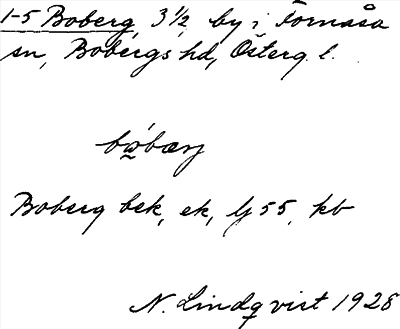 1-5 Boberg, 3 ½, by i Fornåsa
sn, Bobergs hd, Österg. l.
Boberg bek, ek, lj 55, kb
N. Lindqvist 1928